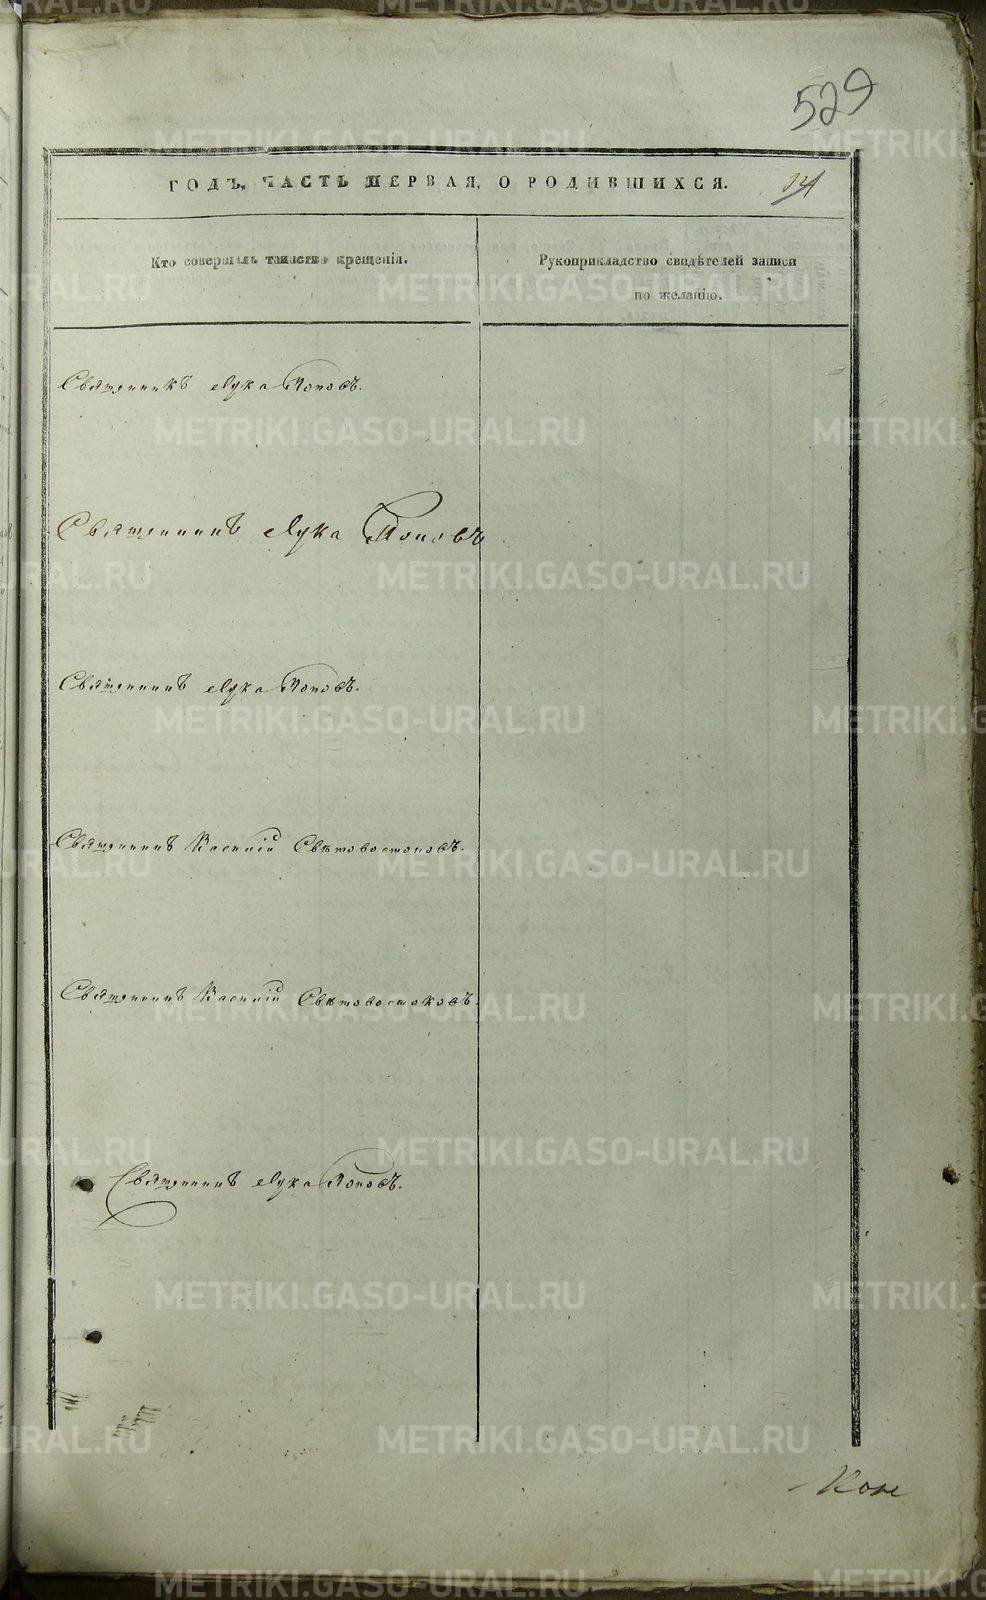 529
ГОДЪ, ЧАСТЬ ПЕРВАЯ, О РОДИВШИХСЯ.
Кто совершалъ таинство крещенія.
Рукоприкладство свидѣтелей записи
по желанію.
Священникъ Лука Поповъ.
Священникъ Лука Поповъ
Священникъ Лука Поповъ.
Священникъ Василій Свѣтовостоковъ.
Священникъ Василій Свѣтовостоковъ.
Священникъ Лука Поповъ.
METRIKI.GASO-URAL.RU